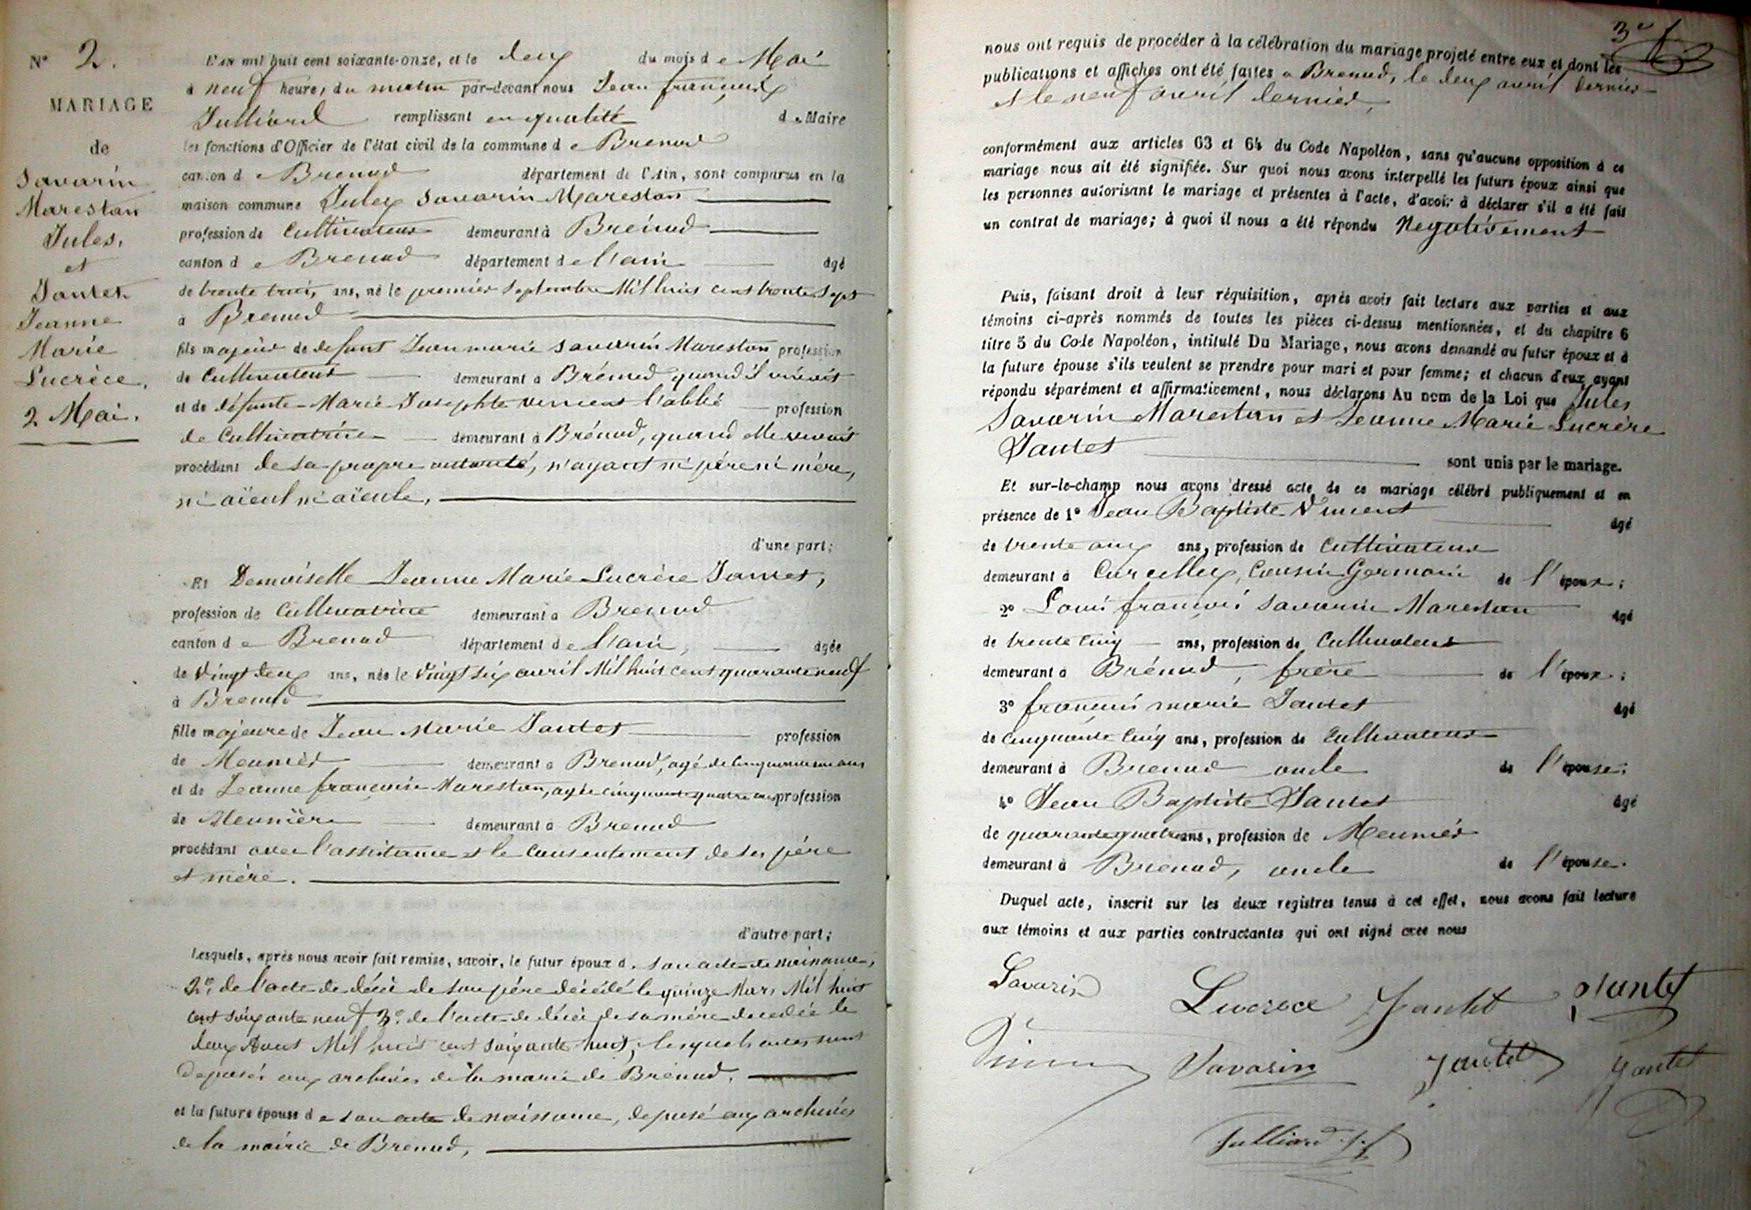 N° 2.
MARIAGE
de
Savarin
Marestan
Jules,
et
Jantet
Jeanne
Marie
Lucrèce,
2 Mai.
L'an mil huit cent soixante-onze, et le deux du mois de Mai
à neuf heures du matin par-devant nous Jean françois
Julliard remplissant en qualité de Maire
les fonctions d'Officier de l'état civil de la commune de Brenod
canton de Brenod département de l'Ain, sont comparus en la
maison commune Jules Savarin Marestan
profession de Cultivateur demeurant à Brénod
canton de Brenod département de l'ain âgé
de trente trois ans, né le premier Septembre Mil huit cent trente sept
à Brenod
fils majeur de defunt Jean marie Savarin Marestan profession
de Cultivateur demeurant à Brénod quand il vivait
et de défunte Marie Josephte vincent l'abbé profession
de Cultivatrice demeurant à Brénod, quand elle vivait
procédant de sa propre autorité, n'ayant ni père ni mère,
ni aïeul ni aïeule,
d'une part;
Et Demoiselle Jeanne Marie Lucrèce Jantet,
profession de Cultivatrice demeurant à Brenod
canton de Brenod département de l'ain, âgée
de vingt deux ans, née le vingt six avril Mil huit cent quarante neuf
à Brenod
fille majeure de Jean Marie Jantet profession
de Meunier demeurant à Brenod, agé de cinquante un ans
et de Jeanne françoise Marestan, agée cinquante quatre ans profession
de Meunière demeurant à Brenod
procédant avec l'assistance et le consentement de ses père
et mère.
d'autre part;
Lesquels, après nous avoir fait remise, savoir, le futur époux de son acte de naissance,
2° de l'acte de décès de son père décédé le quinze Mars Mil huit
cent soixante neuf 3° de l'acte de décès de sa mère decedée le
deux Aout Mil huit cent soixante huit, lesquels actes sont
deposés aux archives de la mairie de Brénod.
et la future épouse de son acte de naissance, deposé aux archives
de la mairie de Brenod,
3e f
nous ont requis de procéder à la célébration du mariage projeté entre eux et dont les
publications et affiches ont été faites à Brenod, le deux avril dernier
et le neuf avril dernier,
conformément aux articles 63 et 64 du Code Napoléon, sans qu'aucune opposition à ce
mariage nous ait été signifiée. Sur quoi nous avons interpellé les futurs époux ainsi que
les personnes autorisant le mariage et présentes à l'acte, d'avoir à déclarer s'il a été fait
un contrat de mariage; à quoi il nous a été répondu Négativement
Puis, faisant droit à leur réquisition, après avoir fait lecture aux parties et aux
témoins ci-après nommés de toutes les pièces ci-dessus mentionnées, et du chapitre 6
titre 5 du Code Napoléon, intitulé Du Mariage, nous avons demandé au futur époux et à
la future épouse s'ils veulent se prendre pour mari et pour femme; et chacun d'eux ayant
répondu séparément et affirmativement, nous déclarons Au nom de la Loi que Jules
Savarin Marestan et Jeanne Marie Lucrèce
Jantet sont unis par le mariage.
Et sur-le-champ nous avons dressé acte de ce mariage célébré publiquement et en
présence de 1° Jean Baptiste Vincent âgé
de trente ans, profession de Cultivateur
demeurant à Corcelles, Cousin Germain de l'époux;
2° Louis françois Savarin Marestan âgé
de trente cinq ans, profession de Cultivateur
demeurant à Brénod, frère de l'époux;
3° françois marie Jantet âgé
de cinquante cinq ans, profession de Cultivateur
demeurant à Brenod oncle de l'épouse;
4° Jean Baptiste Jantet âgé
de quarante quatre ans, profession de Meunier
demeurant à Brenod, oncle de l'épouse.
Duquel acte, inscrit sur les deux registres tenus à cet effet, nous avons fait lecture
aux témoins et aux parties contractantes qui ont signé avec nous
Savarin Lucrece Jantet Jantet
Savarin Jantet Jantet
Julliard J. f